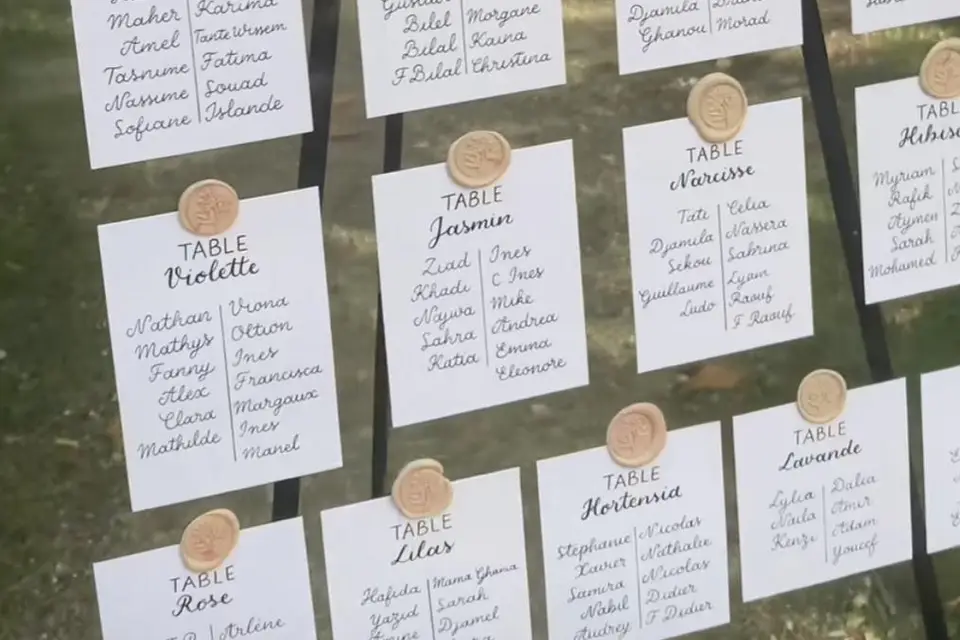 Maher Karima
Amel Tante Wissem
Tasnume Fatima
Nassume Souad
Sofiane Islande
Bilel Morgane
Bilal Kaina
F Bilal Christina
Djamila
Ghanou Morad
TABLE
Violette
Nathan Viona
Mathys Oltion
Fanny Ines
Alex Francisca
Clara Margaux
Mathilde Ines
Manel
TABLE
Jasmin
Ziad Ines
Khadi C Ines
Najwa Mike
Sahra Andrea
Katia Emma
Eleonore
TABLE
Narcisse
Tati Célia
Djamila Nassera
Sekou Sabrina
Guillaume Lyam
Ludo Raouf
F Raouf
TABLE
Myriam
Rafik
Aymen
Sarah
Mohamed
TABLE
Rose
Arlène
TABLE
Lilas
Hafida Mama Ghania
Yazid Sarah
Djamel
TABLE
Hortensia
Stéphanie Nicolas
Xavier Nathalie
Samira Nicolas
Nabil Didier
Audrey F Didier
TABLE
Lavande
Lylia Dalia
Naila Amir
Kenzi Adam
Youcef